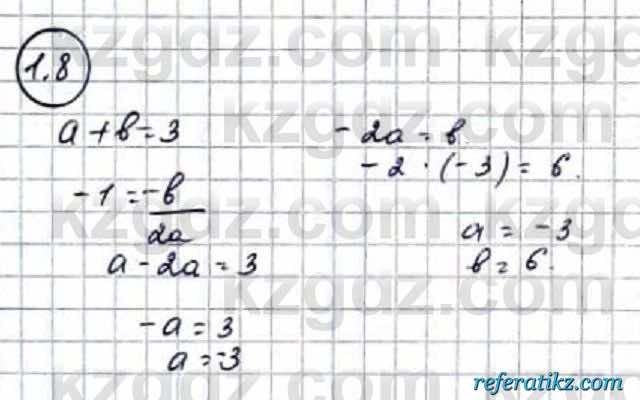 1.8
a + b = 3
-1 = -b/2a
a - 2a = 3
-a = 3
a = -3
-2a = b
-2 · (-3) = 6.
a = -3
b = 6.
kzgdz.com
referatikz.com